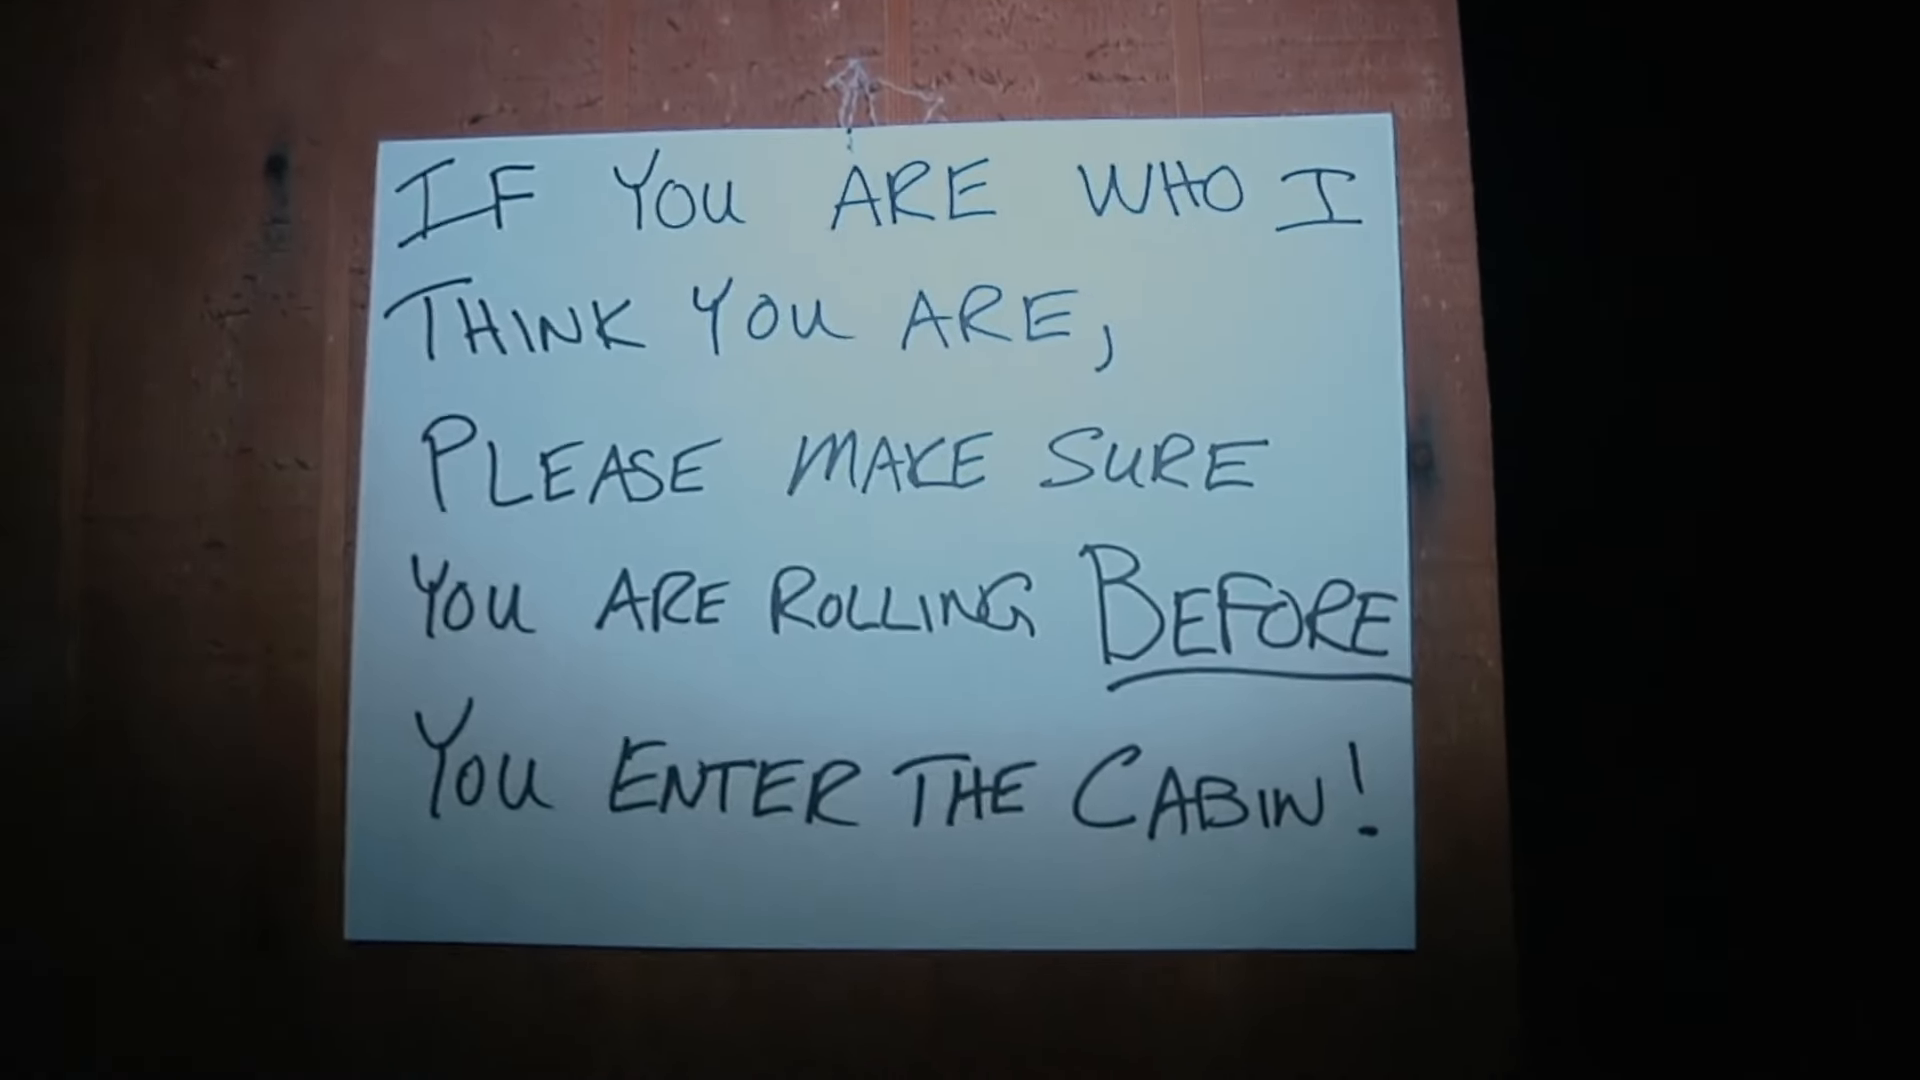 IF YOU ARE WHO I
THINK YOU ARE,
PLEASE MAKE SURE
YOU ARE ROLLING BEFORE
YOU ENTER THE CABIN!